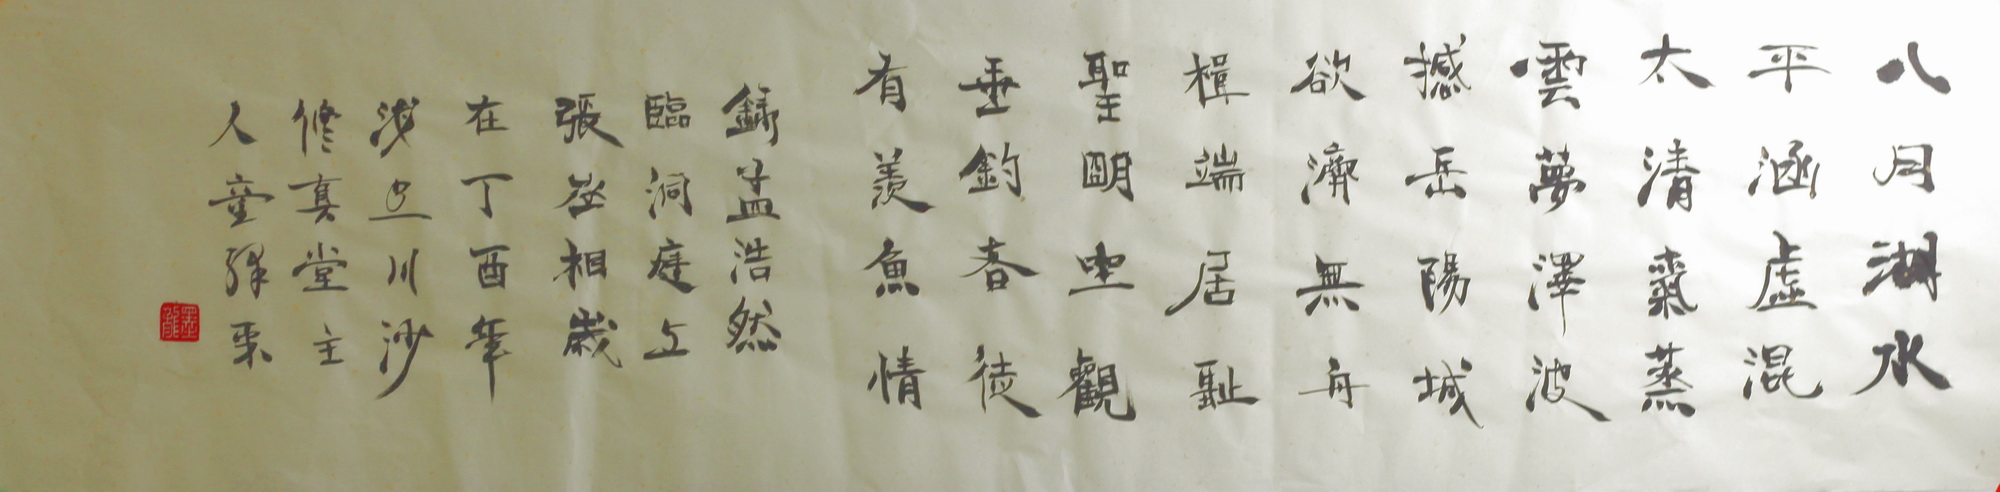 八月湖水
平涵虛混
太清氣蒸
雲夢澤波
撼岳陽城
欲濟無舟
楫端居恥
聖明坐觀
垂釣者徒
有羨魚情
錄孟浩然
臨洞庭上
張丞相歲
在丁酉年
川沙
修真堂主
人童